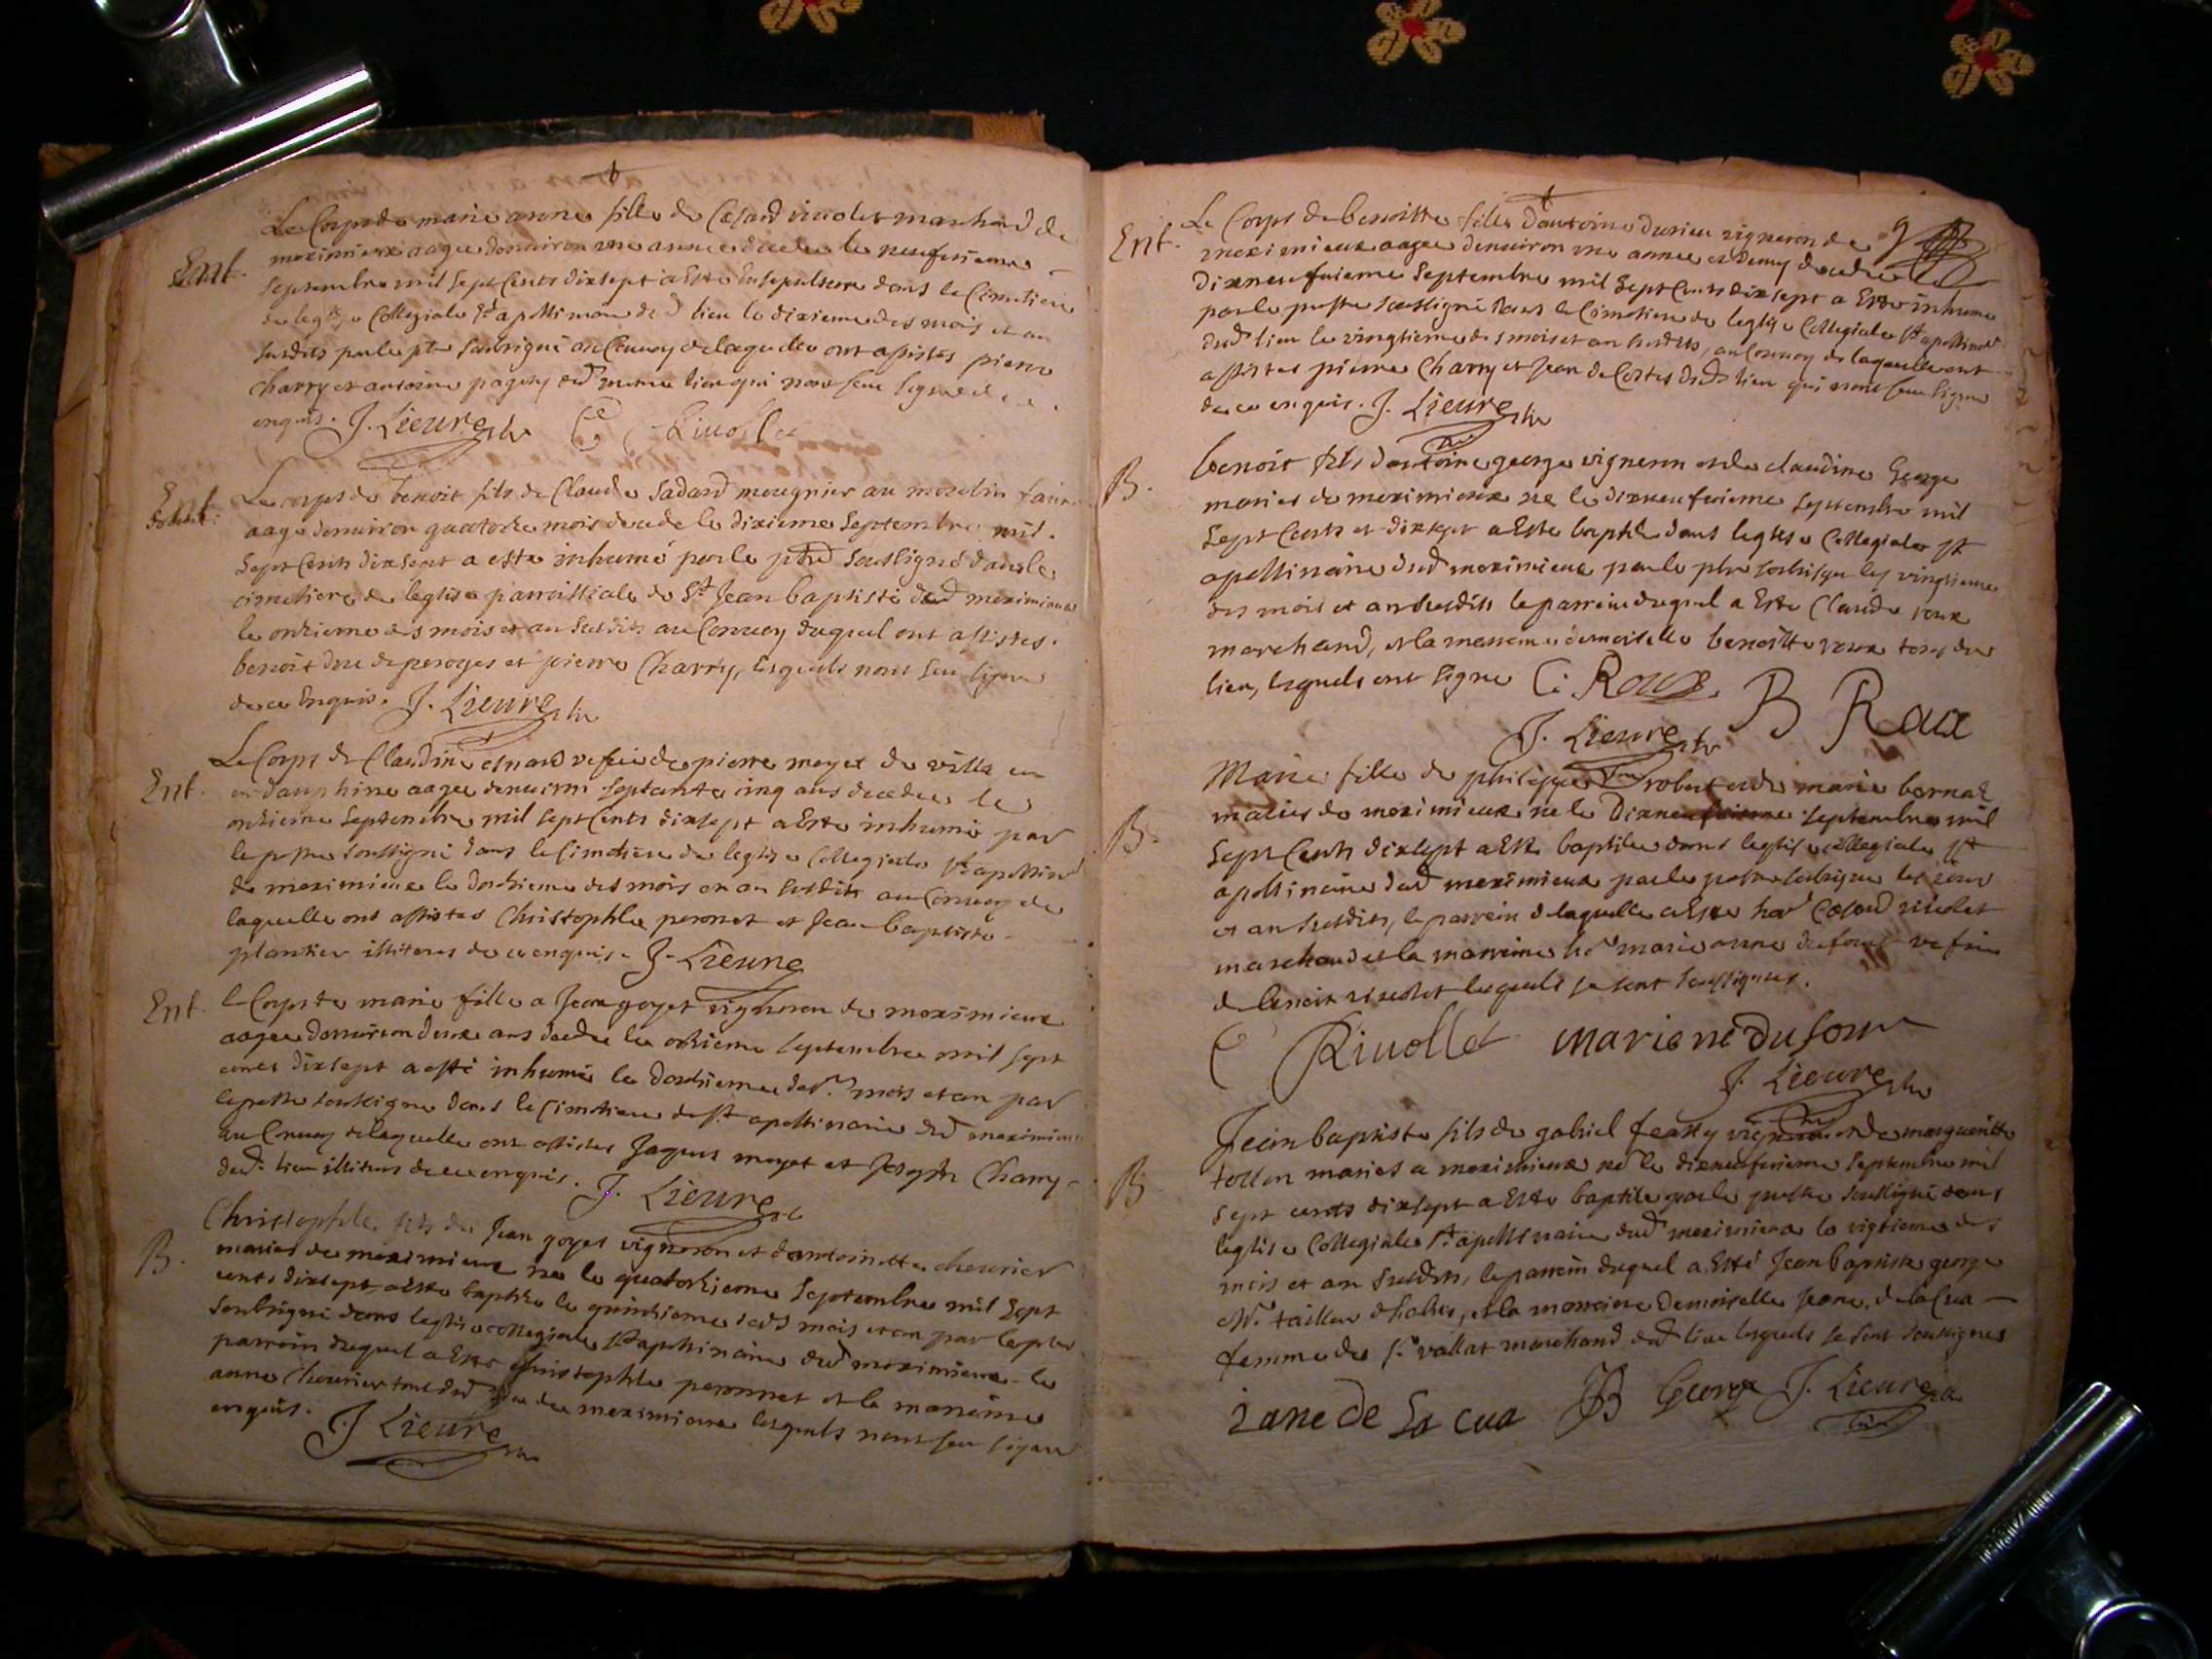 Le Corps de marie anne fille de Cesard riuolet marchand de
Ent. meximieux aagee denuiron une annee decedee le neufuieme
septembre mil sept Cents dixsept a Este Ensepulture dans le Cimetiere
de leglise Collegiale St apollinaire dud lieu le dixieme des mois et an
susdits par le pbre soubsigné au Conuoy de laquelle ont assistés pierre
charry et antoine pagey dud mesme lieu qui nont sceu signer de ce
enquis. J. Lieure C Riuollet
Ent. Le corps de benoit fils de Claude sadard meugnier au moulin
aagé denuiron quatorze mois decede le dixieme septembre mil
sept Cents dixsept a este inhumé par le soussigné dans le
cimetiere de leglise parroissiale de St Jean baptiste dud meximieux
le onzieme des mois et an susdits au Conuoy duquel ont assistes
benoit duc de peroges et pierre Charry, lesquels nont sceu signer
de ce Enquis. J. Lieure
Le Corps de Claudine vefue de pierre moyet de villa en
Ent. en dauphine aagee denuiron septante cinq ans decedee le
onzieme septembre mil sept Cents dixsept a Este inhumé par
le pstre soussigné dans le Cimetiere de leglise Collegiale St apollinaire
de meximieux le douzieme des mois et an susdits au Conuoy de
laquelle ont assistes Christophle peronet et Jean baptiste
plantier illiteres de ce enquis. J. Lieure
Ent. le Corps de marie fille a Jean goyet vigneron de meximieux
aagee denuiron deux ans decedee le onzieme septembre mil sept
cents dixsept a esté inhumé le douzieme desd. mois et an par
le pstre soussigné dans le Cimetiere de St apollinaire dud meximieux
au Conuoy de laquelle ont assistes Jaques moyet et Joseph Charry
dud. lieu illiteres de ce enquis. J. Lieure
Christophle fils de Jean goyet vigneron et dantoinette cheurier
B. maries de meximieux ne le quatorzieme septembre mil sept
cents dixsept a este baptize le quinzieme desd mois et an par le pbre
soubsigné dans leglise collegiale St apollinaire dud meximieux le
parrein duquel a Este christophle peronnet et la marreine
anne Cheurier tous dud lieu de meximieux lesquels nont sceu signer
enquis. J Lieure
Le Corps de benoitte fille dantoine durieu vigneron de 9
Ent. meximieux aagee denuiron une annee et demy decedee
dixneufuieme septembre mil sept Cents dixsept a Este inhume
par le pstre soussigné dans le Cimetiere de leglise Collegiale St apollinaire
dud lieu le vingtieme des mois et an susdits, au Conuoy de laquelle ont
assistes pierre Charry et Jean de Costes dud lieu qui nont sceu signer
de ce enquis. J. Lieure
benoit fils dantoine george vigneron et de claudine George
B. maries de meximieux ne le dixneufuieme septembre mil
sept Cents et dixsept a Este baptize dans leglise Collegiale St
apollinaire dud meximieux par le pbre soubsigné le vingtieme
des mois et an susdits le parrein duquel a Este Claude roux
marchand, et la marreine demoiselle benoitte roux tous du
lieu, lesquels ont signe C. Roux. B Raux
J. Lieure
Marie fille de philippe robert et de marie bernat
B. maries de meximieux ne le Dixneufuieme septembre mil
sept Cents dixsept a Este baptisee dans leglise collegiale St
apollinaire dud meximieux par le pstre soubsigné les jour
et an susdits, le parrein de laquelle a Este hor Cesard riuolet
marchand et la marreine he marie anne dufour vefue
de benoit riuolet lesquels se sont soussignes.
C Riuollet mariane dufour
J. Lieure
Jean baptiste fils de gabriel feally vigneron et de margueritte
B tollon maries a meximieux né le dixneufuieme septembre mil
sept cents dixsept a Este baptize par le pstre soussigné dans
leglise Collegiale St apollinaire dud meximieux le vigtieme des
mois et an susdits, le parrein duquel a Esté Jean baptiste george
Mtre tailleur dhabis, et la marreine Demoiselle Jeane de la Cua
femme de Sr vallat marchand dud lieu lesquels se sont soussignes
iane de La cua JB George J. Lieure